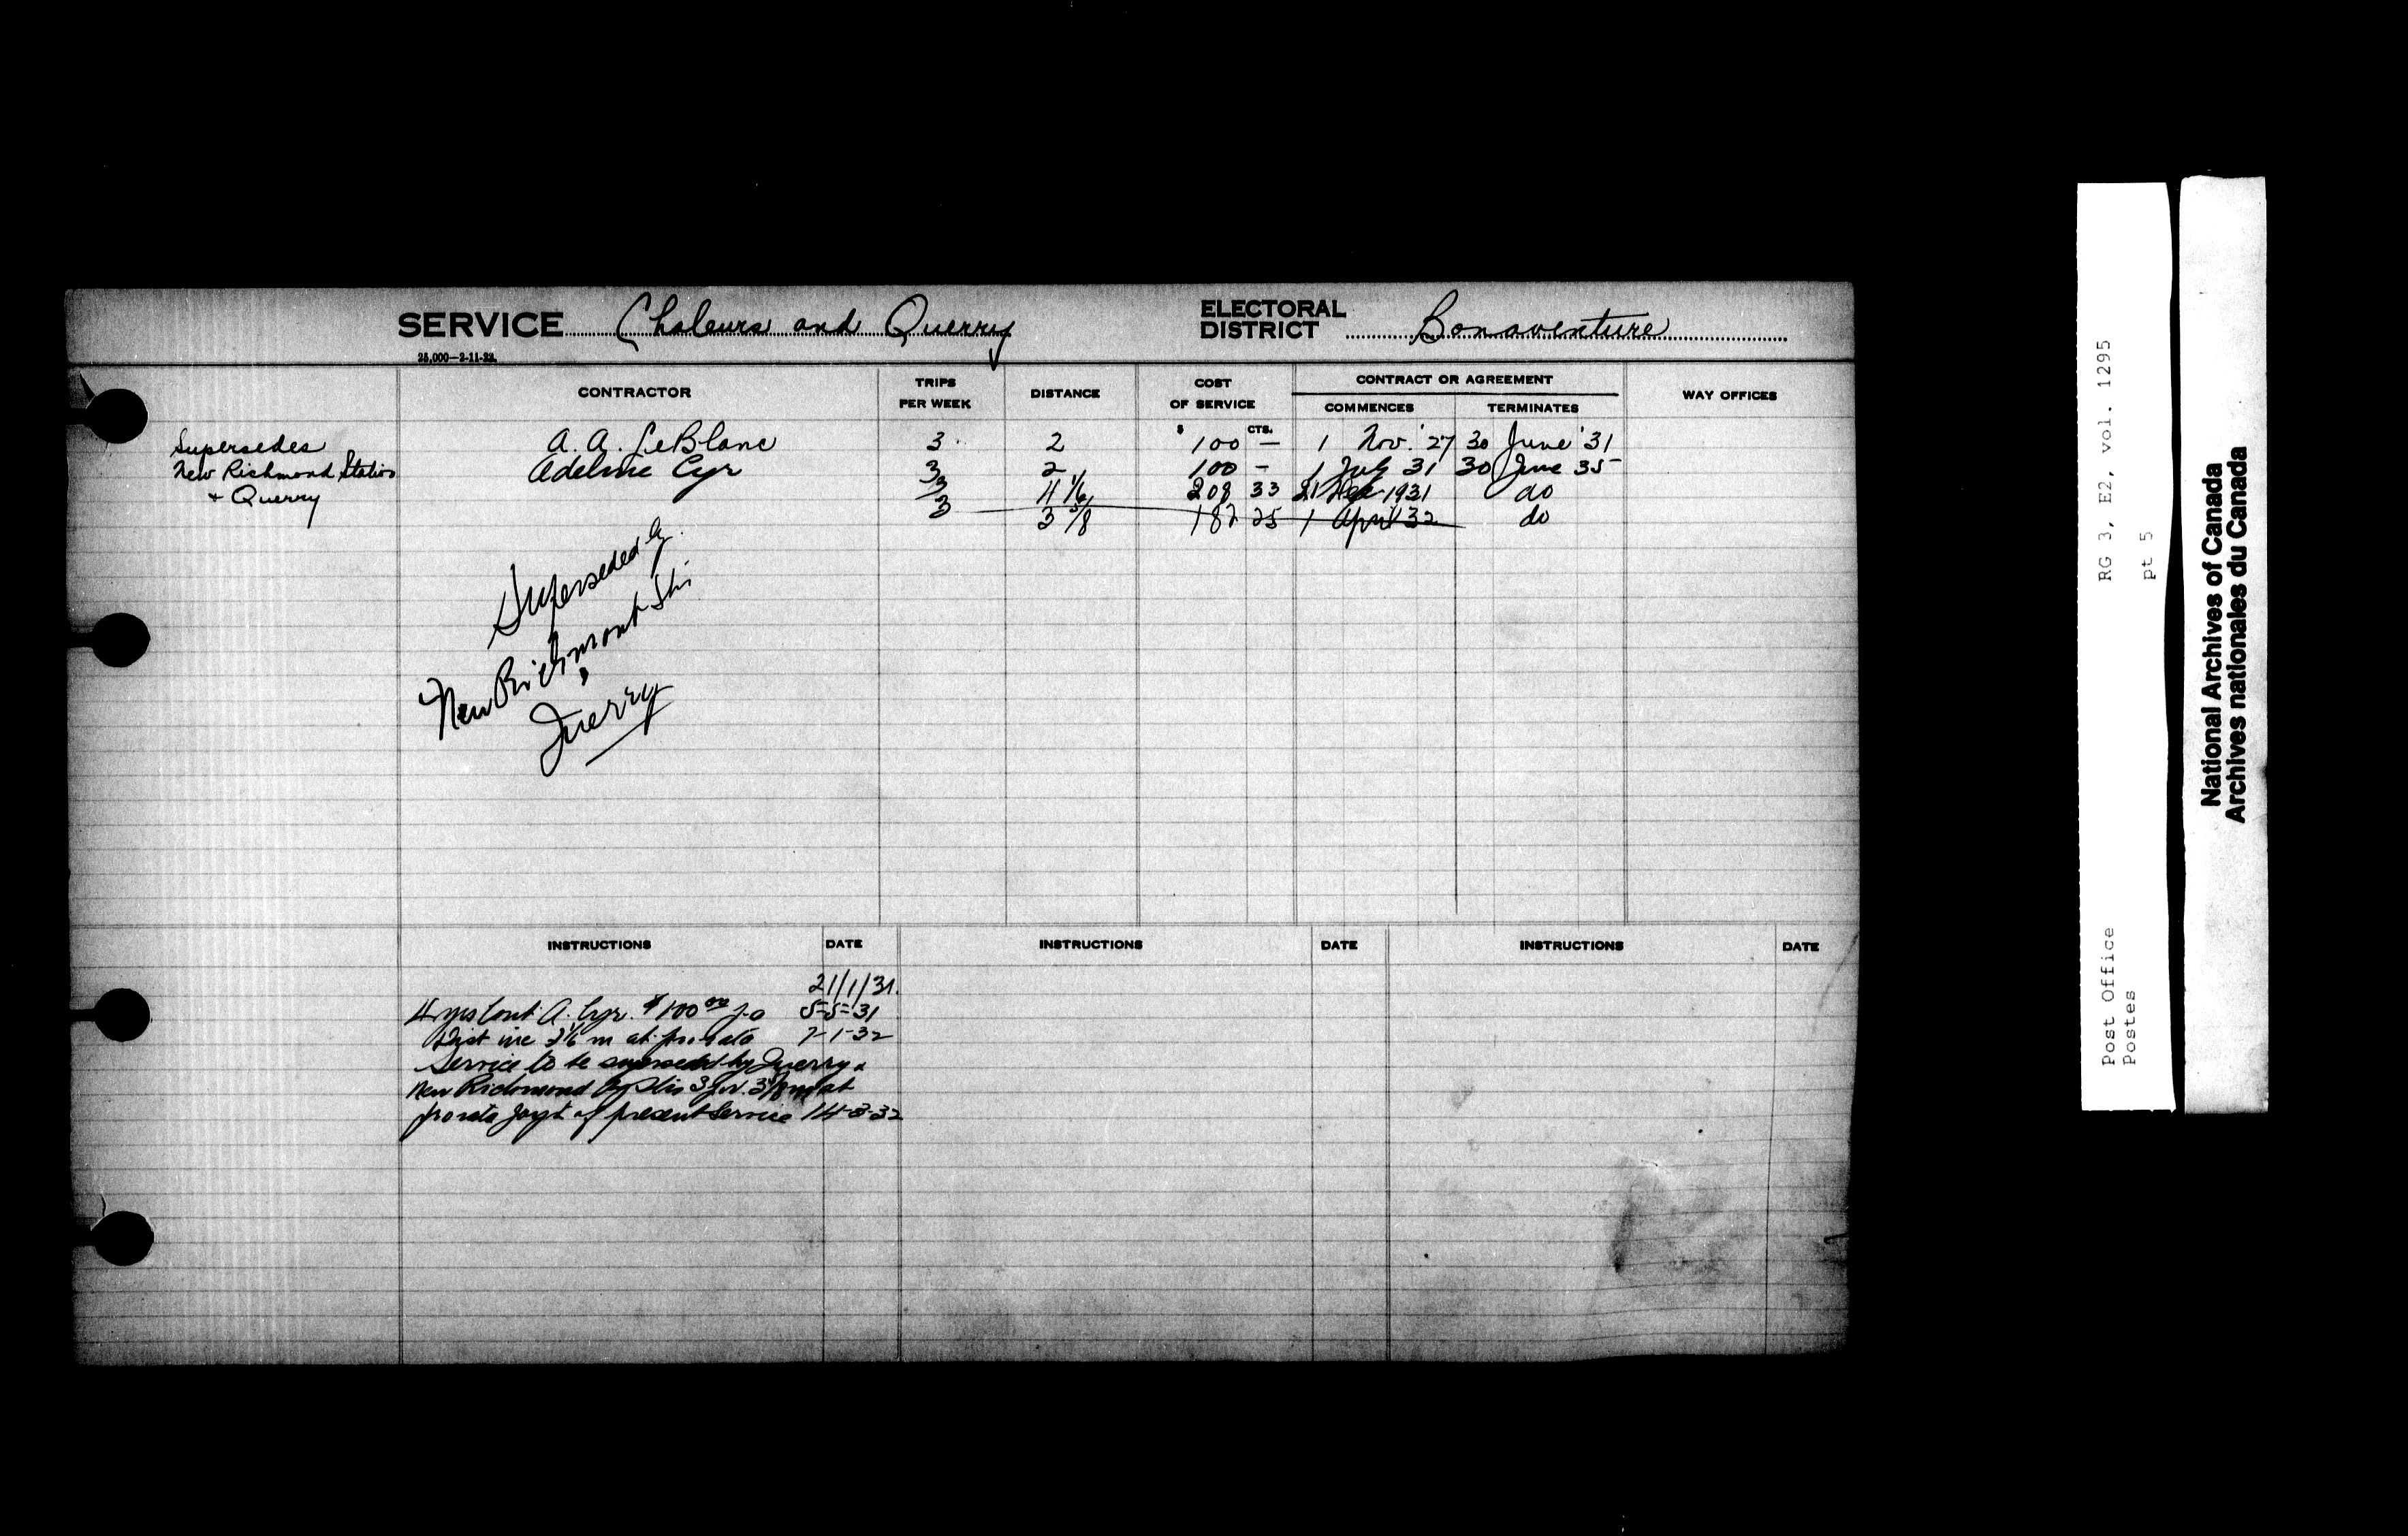 SERVICE Chaleurs and Querry ELECTORAL DISTRICT Bonaventure
25,000—2-11-22.
CONTRACTOR TRIPS PER WEEK DISTANCE COST OF SERVICE CONTRACT OR AGREEMENT COMMENCES TERMINATES WAY OFFICES
$ CTS.
Supersedes A. A. LeBlanc 3 2 100 — 1 Nov. '27 30 June '31
New Richmond Station Adeline Cyr 3 2 100 — 1 July 31 30 June 35
+ Querry 3 4 1/6 208 33 1931 do
3 3 5/8 182 25 1 April 32 do
Superseded by
New Richmond Stn
&
Querry
INSTRUCTIONS DATE INSTRUCTIONS DATE INSTRUCTIONS DATE
21/1/31.
4 yrs Cont. A. Cyr. $100 00 5-5-31
Dist inc 2 1/6 m at pro rata 7-1-32
Service to be superseded by Querry &
New Richmond 3 at
pro rata of present Service 14-3-32
RG 3, E2, vol. 1295
pt 5
Post Office
Postes
National Archives of Canada
Archives nationales du Canada